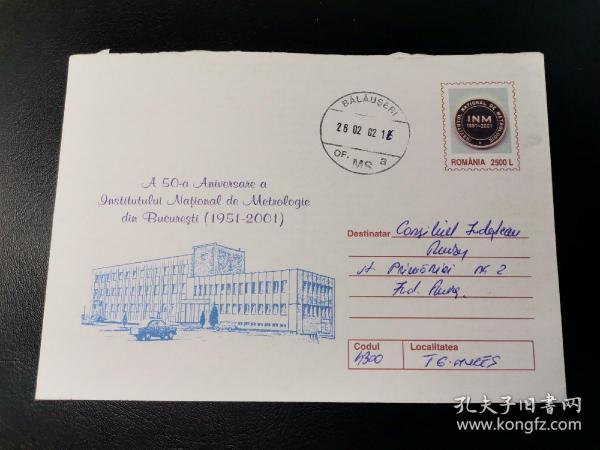 BĂLĂUȘERI
26 02 02 1
OF. MS a
INSTITUTUL NAȚIONAL DE METROLOGIE
INM
1951-2001
ROMÂNIA 2500 L
A 50-a Aniversare a
Institutului Național de Metrologie
din București (1951-2001)
Destinatar Consiliul Județean
Mureș
Primăriei nr. 2
Jud. Mureș
Codul Localitatea
4300 TG. MUREȘ
孔夫子旧书网
www.kongfz.com